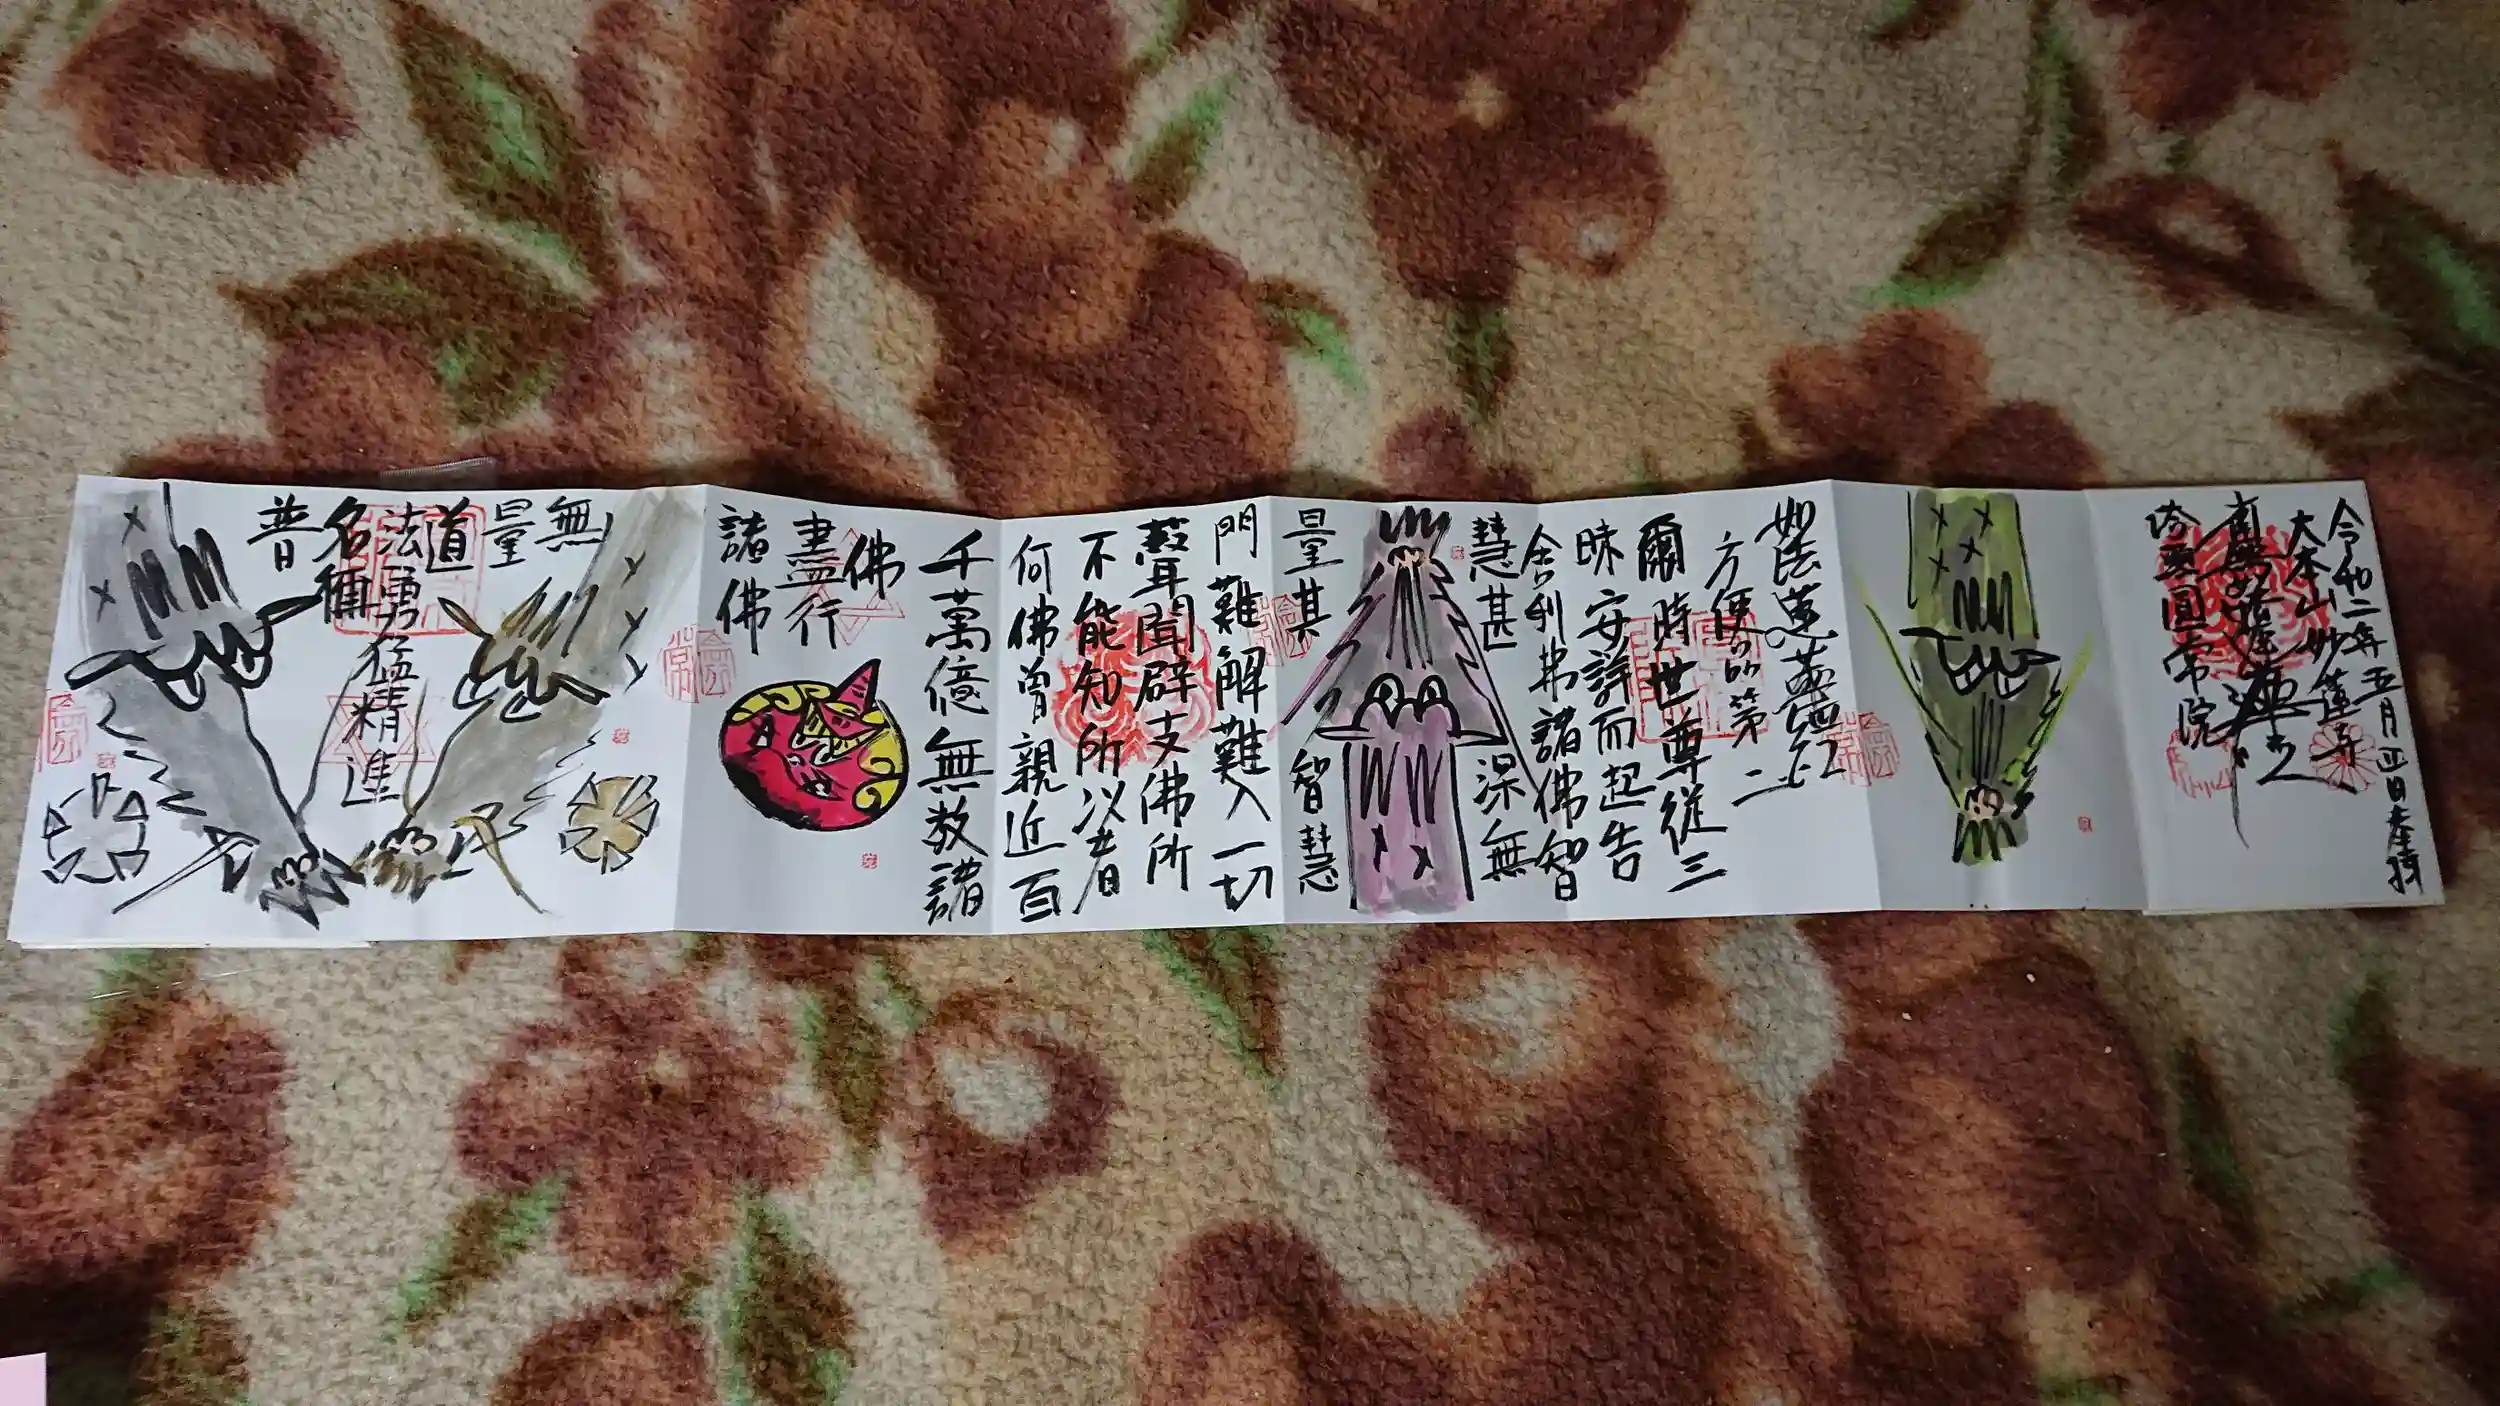 令和二年五月四日奉拝
大本山妙蓮寺
南無妙法蓮華経
塔頭圓常院
妙法蓮華経
方便品第二
爾時世尊従三
昧安詳而起告
舎利弗諸佛智
慧甚深無
量其智慧
門難解難入一切
聲聞辟支佛所
不能知所以者
何佛曾親近百
千萬億無数諸
佛
盡行
諸佛
無
量
道
法勇猛精進
名稱
普